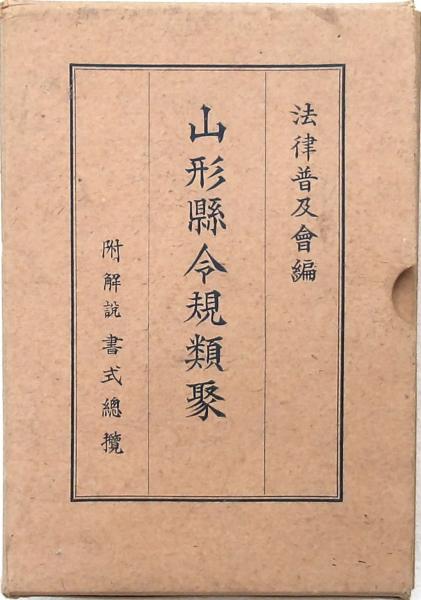 法律普及會編
山形縣令規類聚
附解說書式總攬